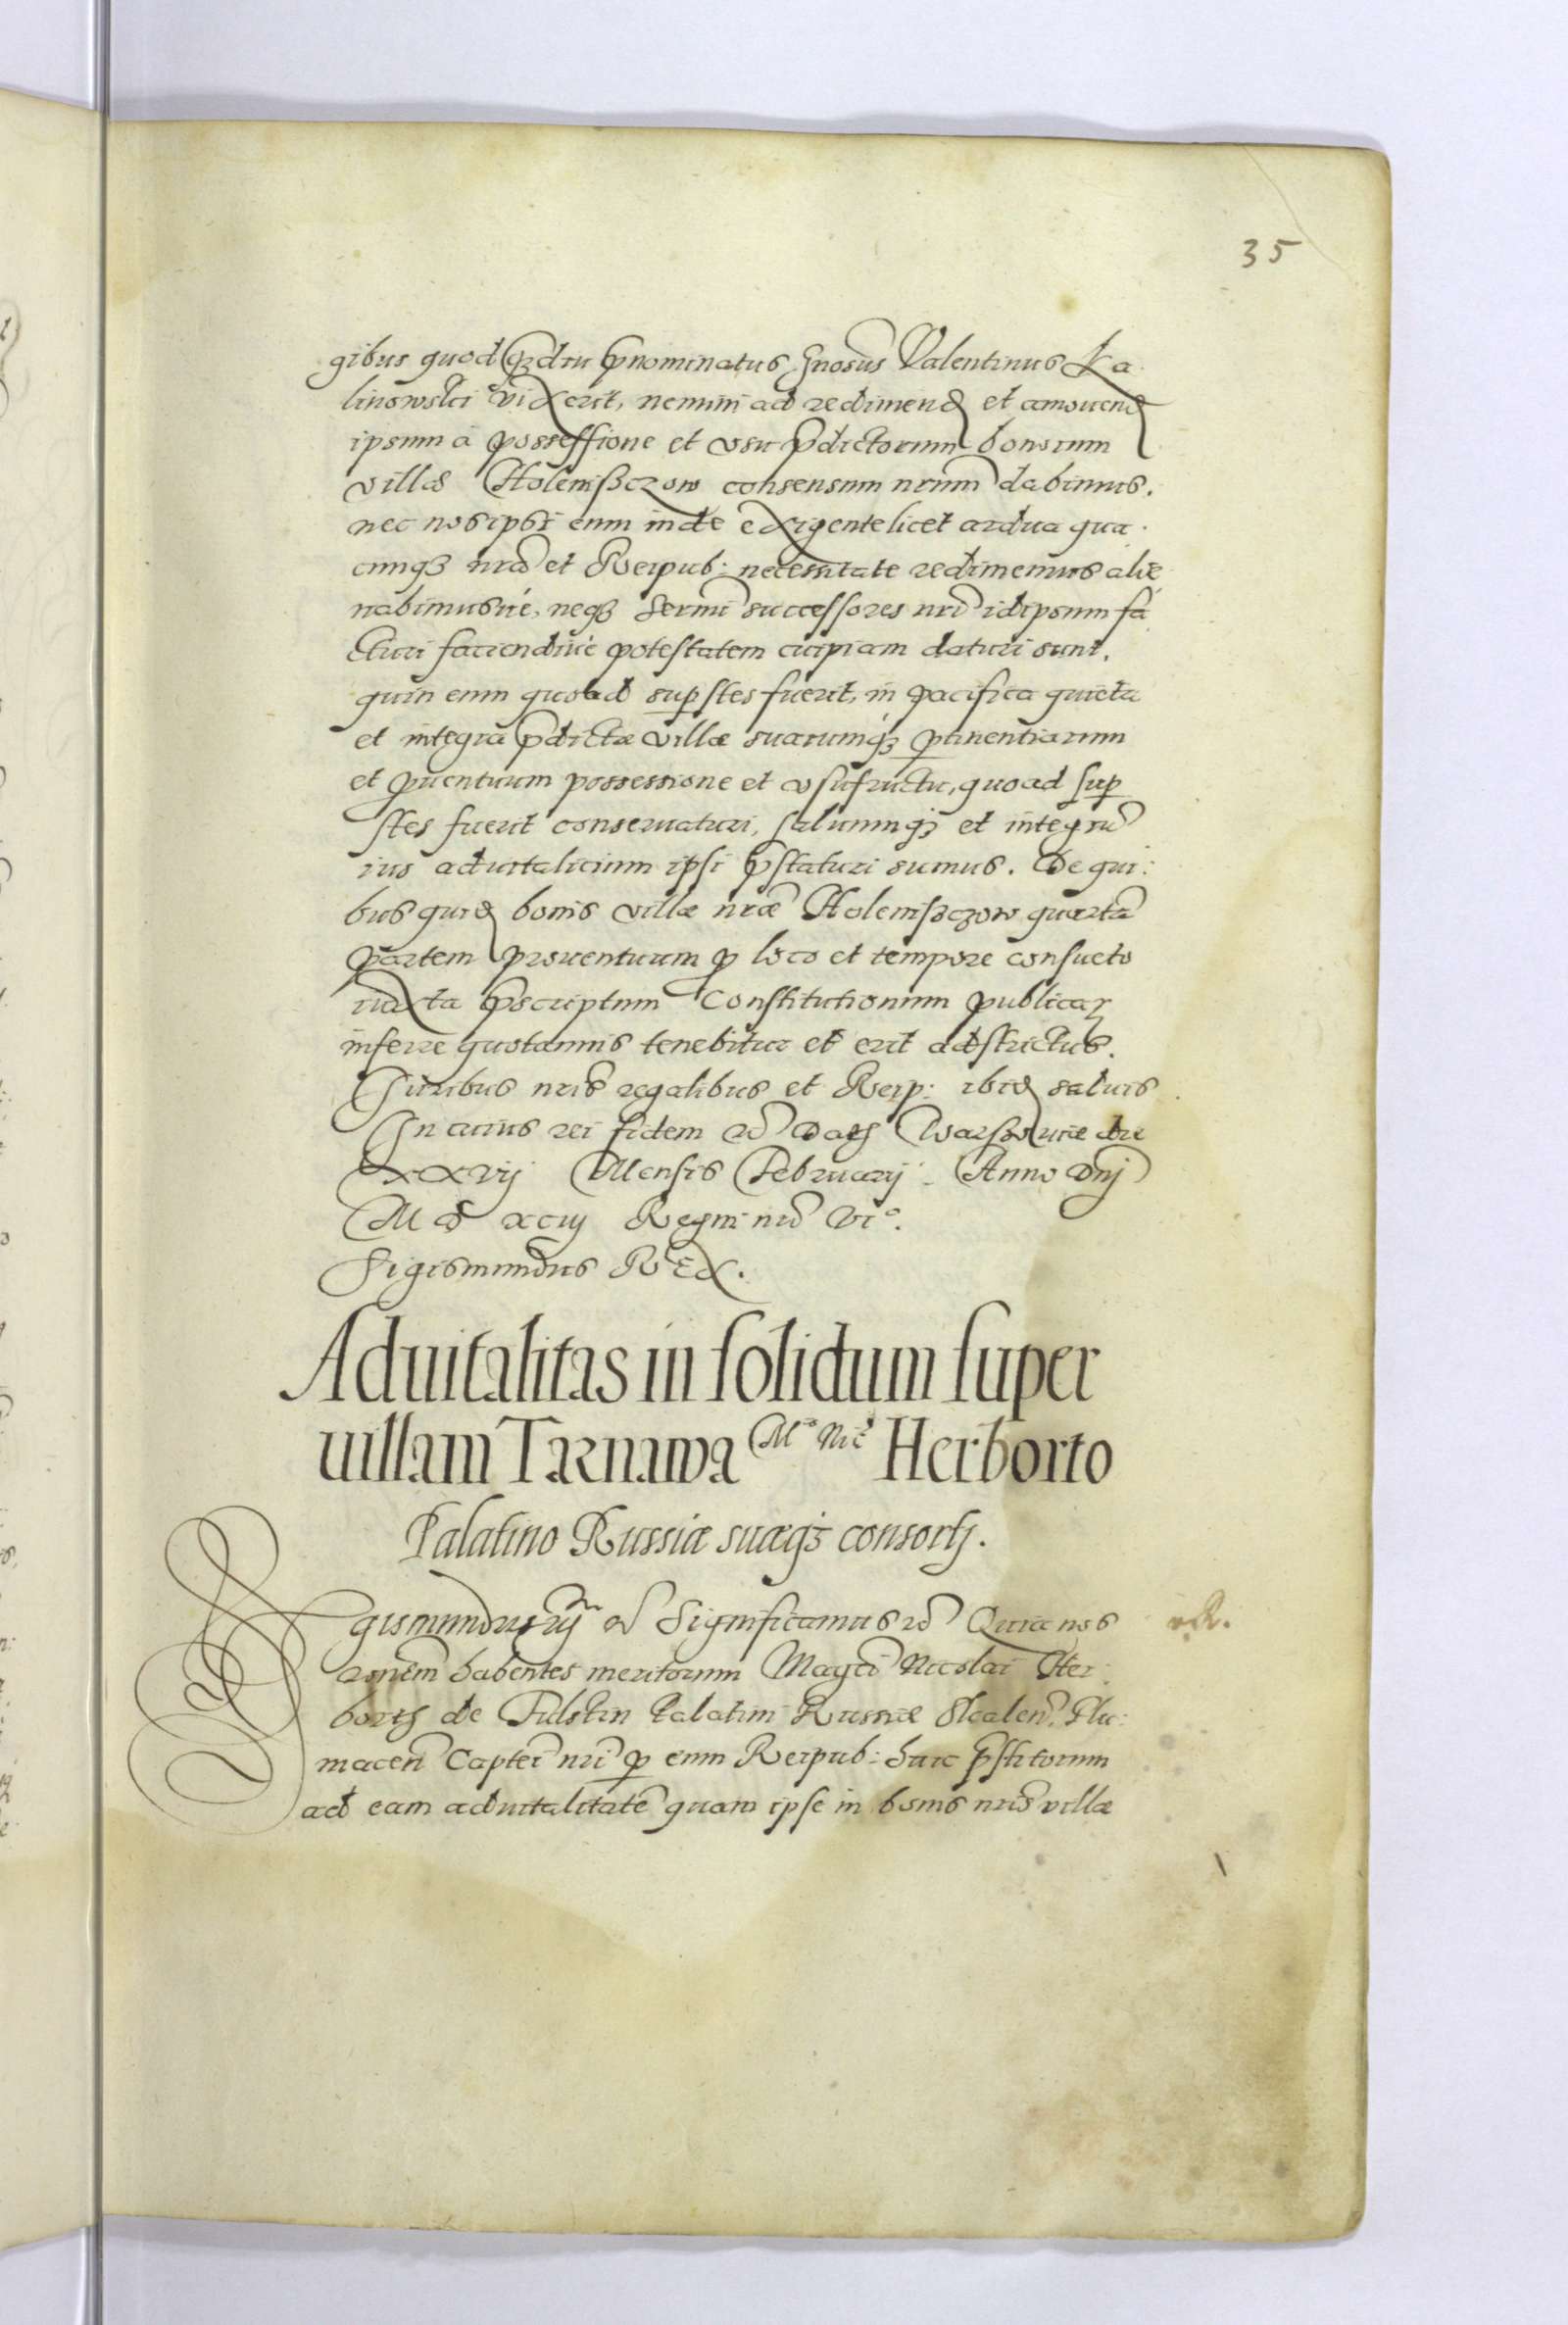 35
gibus quod qzdiu pnominatus Gnosus Valentinus Ka
linowski vixerit, nemini ad redimend et amouend
ipsum à possessione et vsu pdictorum bonorum
villæ Holenißczow consensum nrum dabimus.
nec nos ipsi eum inde exigente licet ardua qua
cunqz nra et Reipub: necessitate redimemus alie
nabimusue, neqz Sermi successores nri idipsum fa
cturi faciendiue potestatem cuipiam daturi sunt,
quin eum quoad supstes fuerit, in pacifica quieta
et integra pdictæ villæ suarumqz ptinentiarum
et puentuum possessione et vsufructu, quoad sup
stes fuerit conseruaturi, saluumqz et integru
ius aduitalicium ipsi pstaturi sumus. De qui:
bus quid bonis villæ nræ Holenißczow quarta
partem prouentuum p loco et tempore consueto
iuxta pscriptum Constitutionum publicar
inferre quotannis tenebitur et erit adstrictus.
Iuribus nris regalibus et Reip: ibid saluis
In cuius rei fidem Dats Warsouiæ die
XXVij Mensis Februarij Anno Dnj
M D xciij Regni nri VI°.
Sigismundus REX.
Aduitalitas in solidum super
uillam Tarnawa M° Nic Herborto
Palatino Russiæ suæqz consorti.
Sigismundus iij Significamus Quia nos
ronem habentes meritorum Magci Nicolai Her:
borti de Fulstin Palatini Russiæ Skalen. Tlu:
macen Captei nri p eum Reipub: huic pstitorum
ad eam aduitalitate quam ipse in bonis nris villæ